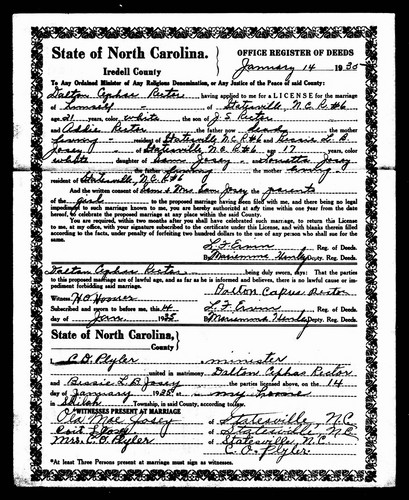 State of North Carolina.
Iredell County
OFFICE REGISTER OF DEEDS
January 14 1935
To Any Ordained Minister of Any Religious Denomination, or Any Justice of the Peace of said County:
Dalton Cephas Rector having applied to me for a LICENSE for the marriage
of himself of Statesville, N.C. R#6
age 21 years, color white the son of J. S. Rector
and Addie Rector the father now dead, the mother
living resident of Statesville N.C. R#6 and Bessie L. B.
Josey of Statesville, N.C. R#6 age 17 years, color
white daughter of Sam Josey and Josey
the father living the mother living
resident of Statesville, N.C. R#6
And the written consent of Sam & Mrs. Sam Josey the parents
of the girl to the proposed marriage having been filed with me, and there being no legal
impediment to such marriage known to me, you are hereby authorized at any time within one year from the date
hereof, to celebrate the proposed marriage at any place within the said County.
You are required, within two months after you shall have celebrated such marriage, to return this License
to me, at my office, with your signature subscribed to the certificate under this License, and with blanks therein filled
according to the facts, under penalty of forfeiting two hundred dollars to the use of any person who shall sue for the
same.
L. F. Ervin Reg. of Deeds.
By Depty. Reg. of Deeds.
Dalton Cephas Rector being duly sworn, days: That the parties
to this proposed marriage are of lawful age, and as far as he is informed and believes, there is no lawful cause or im-
pediment forbidding said marriage.
Dalton Rector
Witness H. O. Hoover
Subscribed and sworn to before me, this 14 L. F. Ervin Reg. of Deeds.
day of Jan. 1935 By Depty. Reg. of Deeds.
State of North Carolina,
County
I, C. O. Plyler minister
united in matrimony Dalton Cephas Rector
and Bessie L B Josey the parties licensed above, on the 14
day of January 1935 at my home
in Shiloh Township, in said County, according to law.
WITNESSES PRESENT AT MARRIAGE
Ola Mae Josey of Statesville, N.C
Coit L Josey of Statesville, N.C
Mrs. C. O. Plyler of Statesville, N.C.
C. O. Plyler
*At least Three Persons present at marriage must sign as witnesses.